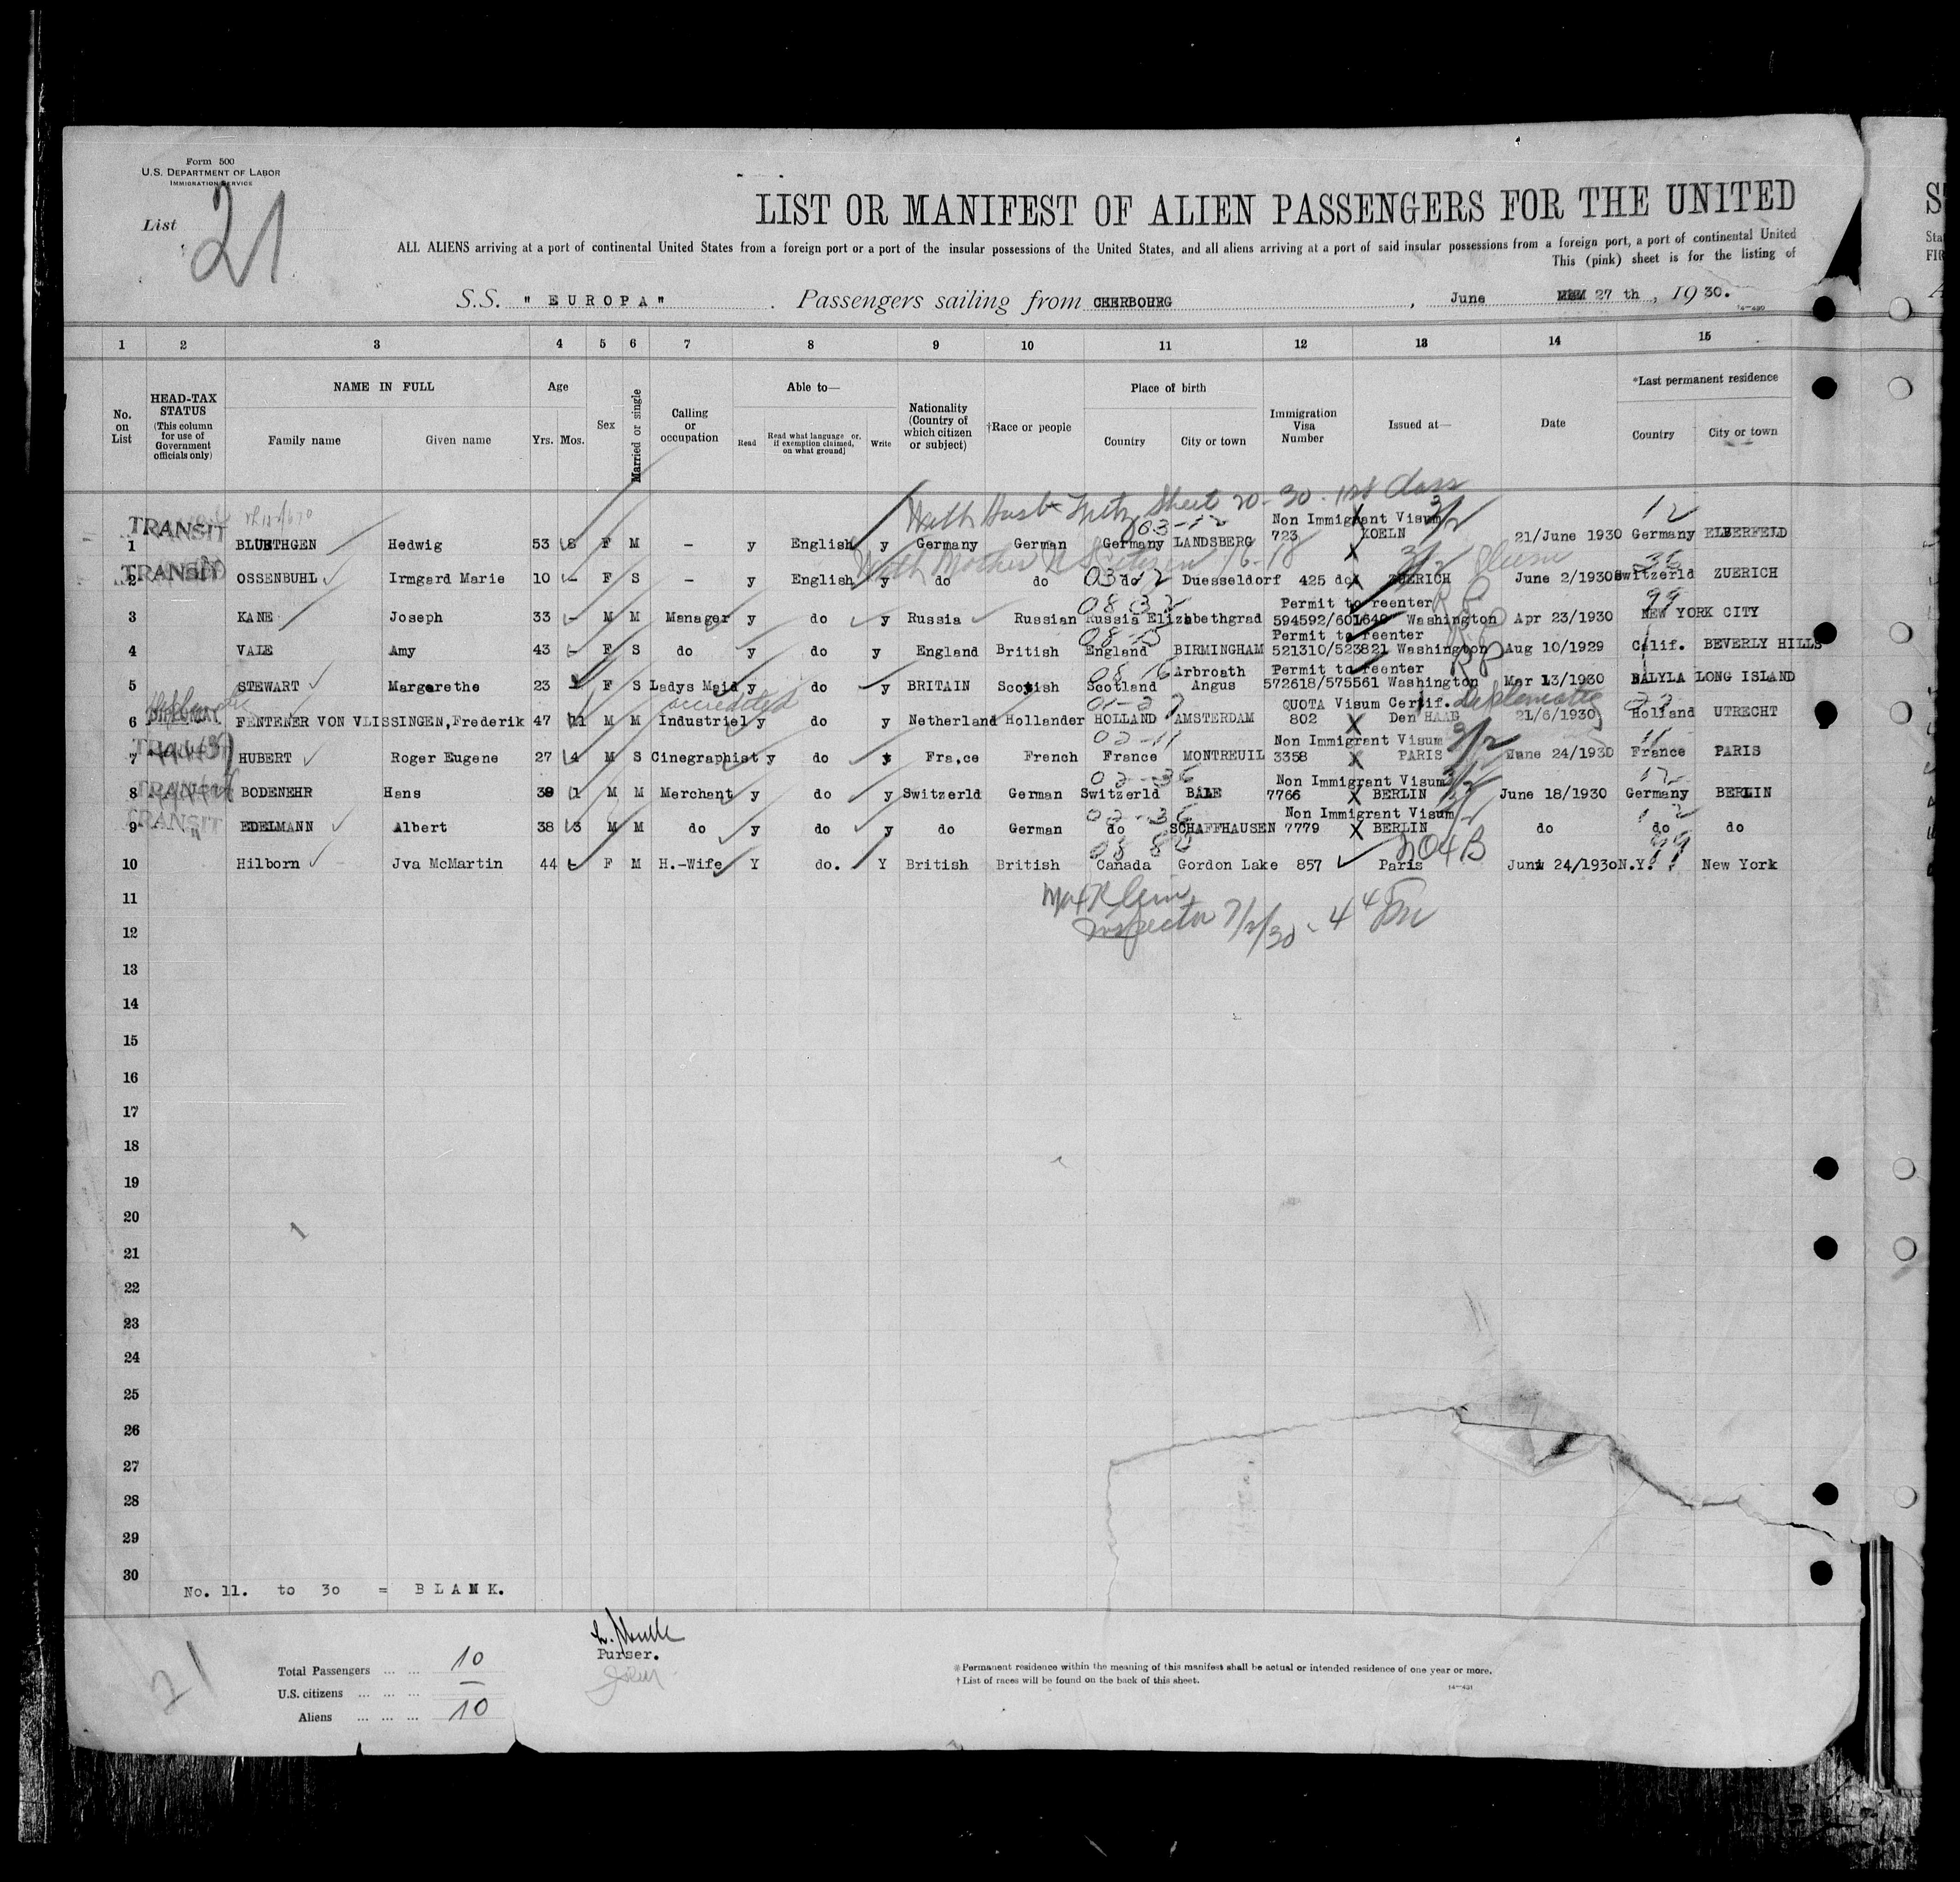 Form 500
U.S. DEPARTMENT OF LABOR
IMMIGRATION SERVICE
List 21
LIST OR MANIFEST OF ALIEN PASSENGERS FOR THE UNITED
ALL ALIENS arriving at a port of continental United States from a foreign port or a port of the insular possessions of the United States, and all aliens arriving at a port of said insular possessions from a foreign port, a port of continental United
This (pink) sheet is for the listing of
S.S. " EUROPA" . Passengers sailing from CHERBOURG , June 27 th , 19 30.
1 2 3 4 5 6 7 8 9 10 11 12 13 14 15
No. on List
HEAD-TAX STATUS (This column for use of Government officials only)
NAME IN FULL Family name Given name
Age Yrs. Mos.
Sex
Married or single
Calling or occupation
Able to— Read Read what language or, if exemption claimed, on what ground] Write
Nationality (Country of which citizen or subject)
†Race or people
Place of birth Country City or town
Immigration Visa Number
Issued at—
Date
*Last permanent residence Country City or town
With Husb Sheet 20-30-1st class
TRANSIT Non Immigrant Visum 3/2 12
1 BLUETHGEN Hedwig 53 8 F M - y English y Germany German Germany LANDSBERG 723 KOELN 21/June 1930 Germany ELBERFELD
With Mother
TRANSIT
2 OSSENBUHL Irmgard Marie 10 - F S - y English y do do do Duesseldorf 425 do ZUERICH June 2/1930 Switzerld ZUERICH
Permit to reenter 99
3 KANE Joseph 33 - M M Manager y do y Russia Russian Russia Elizabethgrad 594592/601640 Washington Apr 23/1930 NEW YORK CITY
Permit to reenter
4 VALE Amy 43 - F S do y do y England British England BIRMINGHAM 521310/523821 Washington Aug 10/1929 Calif. BEVERLY HILLS
Arbroath Permit to reenter
5 STEWART Margarethe 23 F S Ladys Maid y do y BRITAIN Scotish Scotland Angus 572618/575561 Washington Mar 13/1930 BALYLA LONG ISLAND
accredited QUOTA Visum Certif. Diplomatic
6 DIPLOMAT FENTENER VON VLISSINGEN,Frederik 47 11 M M Industriel y do y Netherland Hollander HOLLAND AMSTERDAM 802 Den HAAG 21/6/1930 Holland UTRECHT
TRANSIT 02-11 Non Immigrant Visum 3/2
7 HUBERT Roger Eugene 27 4 M S Cinegraphist y do y Fra,ce French France MONTREUIL 3358 PARIS June 24/1930 France PARIS
TRANSIT 02-36 Non Immigrant Visum 12
8 BODENEHR Hans 39 1 M M Merchant y do y Switzerld German Switzerld BALE 7766 BERLIN June 18/1930 Germany BERLIN
TRANSIT 02-36 Non Immigrant Visum
9 EDELMANN Albert 38 3 M M do y do y do German do SCHAFFHAUSEN 7779 BERLIN do do do
10 Hilborn Jva McMartin 44 - F M H.-Wife Y do. Y British British Canada Gordon Lake 857 Paris June 24/1930 N.Y. New York
11
Inspector 7/2/30
12
13
14
15
16
17
18
19
20
21
22
23
24
25
26
27
28
29
30
No. 11. to 30 = BLANK.
Purser.
21
Total Passengers ... ... 10
U.S. citizens ... ... ... —
Aliens ... ... ... 10
*Permanent residence within the meaning of this manifest shall be actual or intended residence of one year or more.
†List of races will be found on the back of this sheet.
14—431